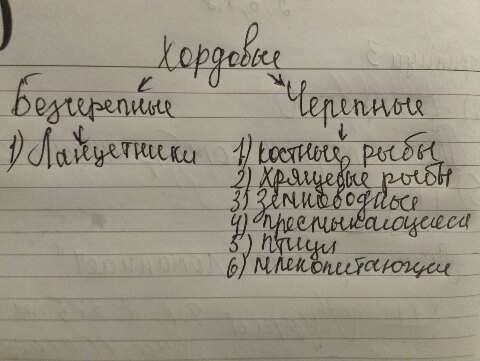 Хордовые
Безчерепные Черепные
1) Ланцетники 1) костные рыбы
2) хрящевые рыбы
3) Земноводные
4) пресмыкающиеся
5) птицы
6) млекопитающие